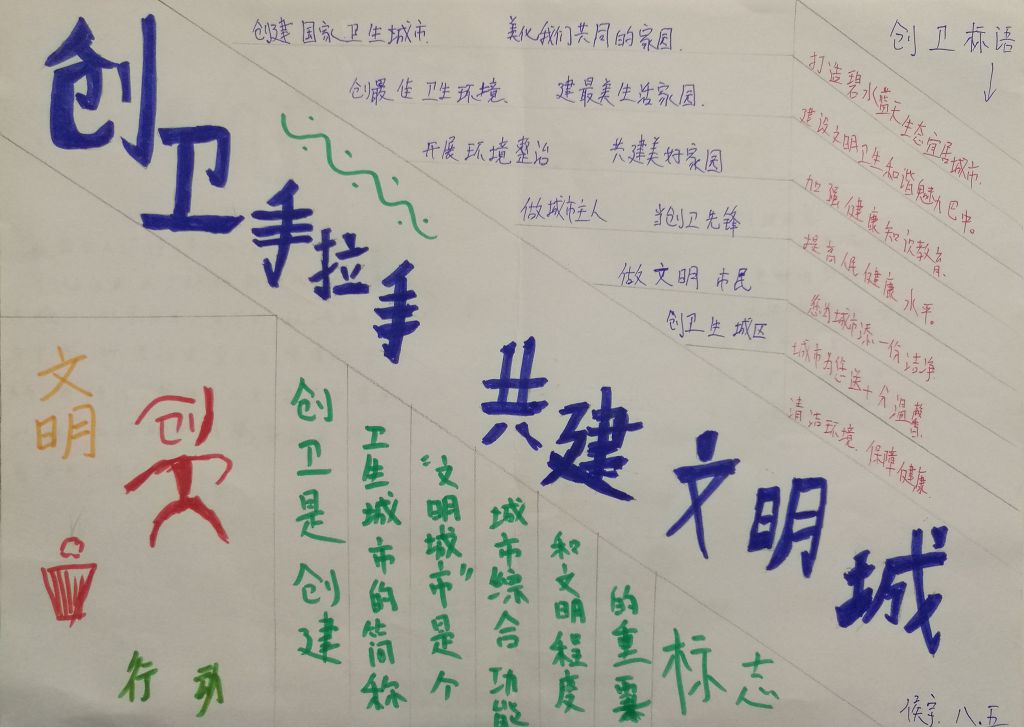 创卫手拉手
共建文明城
创建国家卫生城市. 美化我们共同的家园.
创最佳卫生环境. 建最美生活家园.
开展环境整治 共建美好家园
做城市主人 当创卫先锋
做文明市民
创卫生城区
创卫标语
打造碧水蓝天生态宜居城市.
建设文明卫生和谐魅力巴中。
加强健康知识教育.
提高人民健康水平。
您为城市添一份洁净
城市为您送十分温馨.
清洁环境.保障健康.
文明
创
行动
创卫是创建
卫生城市的简称
“文明城市”是个
城市综合功能
和文明程度
的重要
标志
八.五